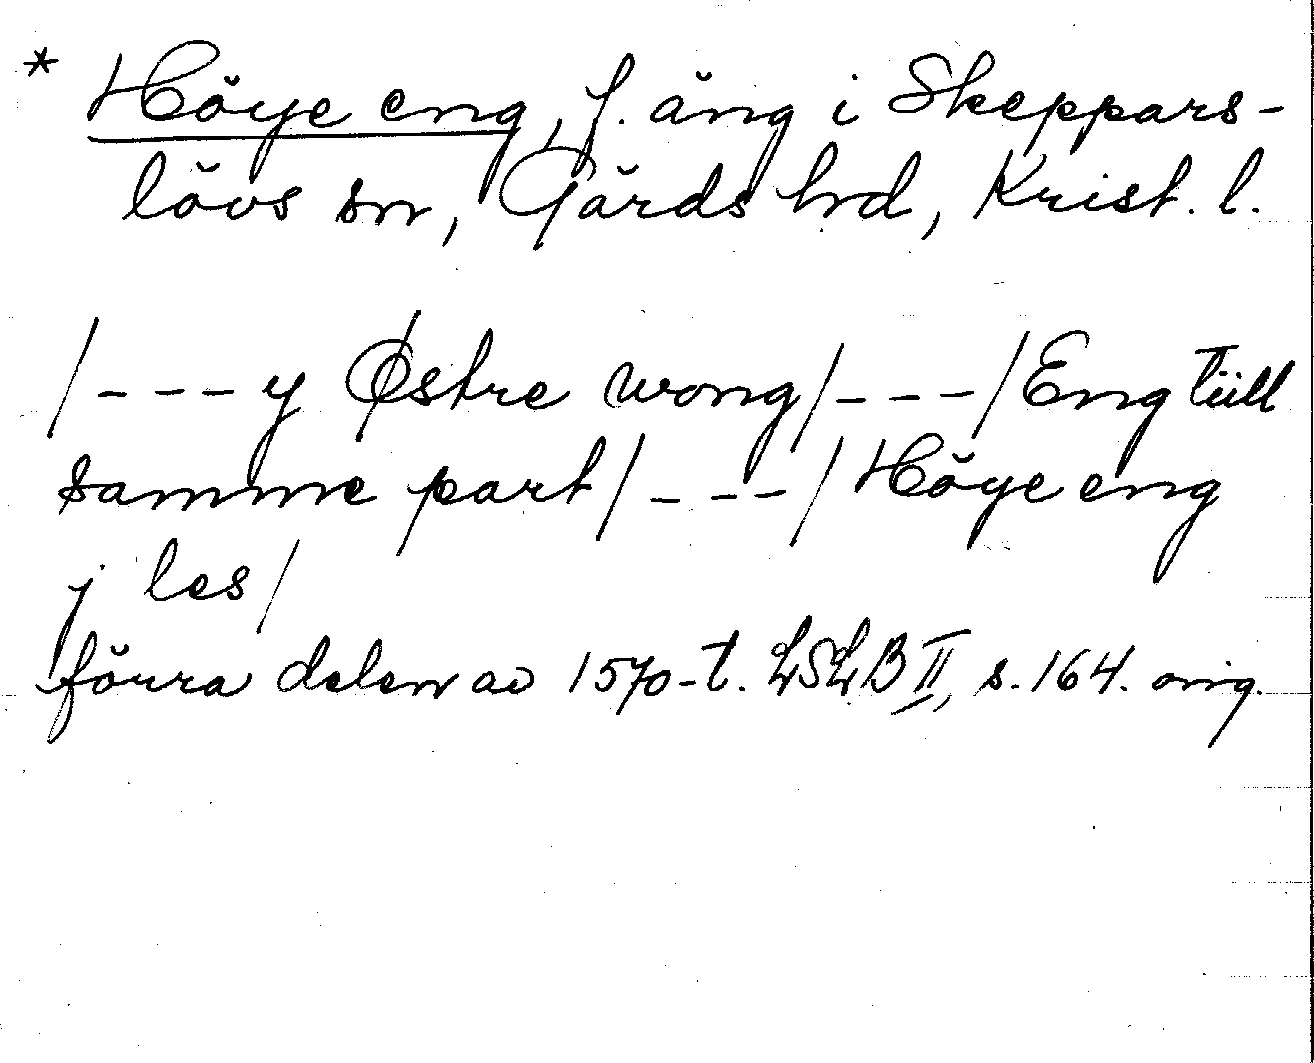 * Höye eng, f. äng i Skeppars-
lövs sn, Gärds hd, Krist. l.
/---y Østre wong/---/Eng tiill
samme part/---/Höye eng
j les/
förra delen av 1570-t. LSLB II, s. 164. orig.